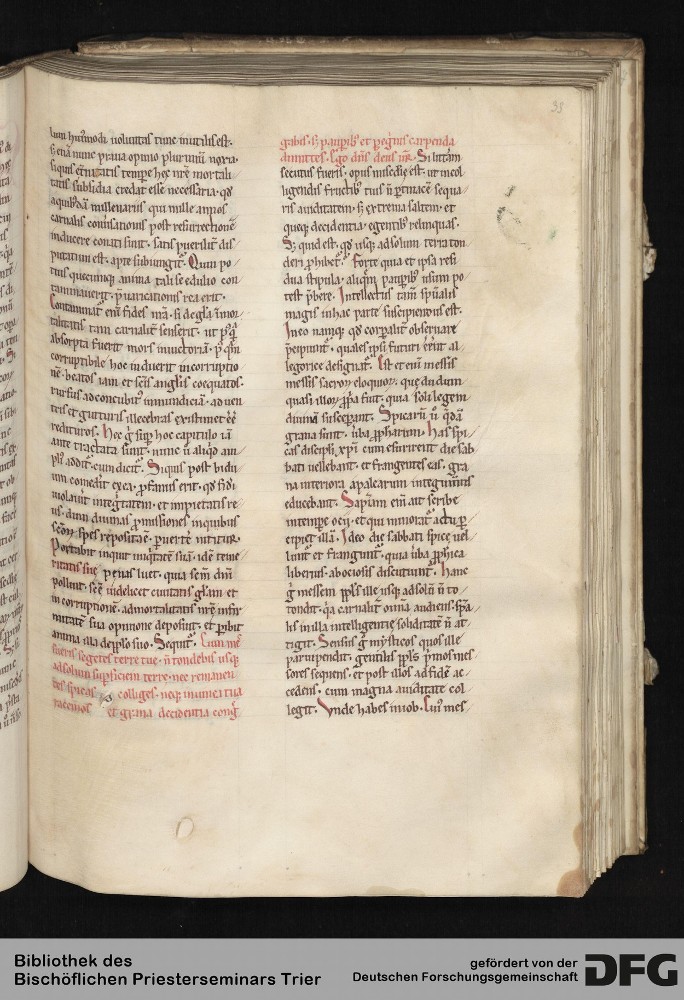 35
lum hui9modi uoluntas tunc inutilis est.
s; etiā nunc praua opinio plurimū noxia.
siquis etͥnitatis tempe hec nr̄e mortali
tatis sublidia credat esse necessaria. qđ
aquib9dā millenariis qui mille annos
carnalis conuersationis post resurrectionē
inducere conati sunt. satis pueriliť dis
putatum est. apte subiungit. Quin po
tius quecunq; anima tali se edulio con
taminauerit. p̄uaricationis rea erit.
Contaminať eni fides nr̄a. si de gľa īmor
talitatis tam carnaliť senserit. ut pq̄
absorpta fuerit mors inuictoria. p; qm̄
corruptibile hoc induerit incorruptio
nē. beatos iam et sc̄is angľis coequatos.
rursus ad concubitus immundiciā. ad uen
tris et gutturis illecebras existimet eē
redituros. Hec ḡ sup hoc capitulo iā
ante tractata sunt. nunc ū aliqđ am
pli9 addit. cum dicit. Siquis post bidu
um comedit ex ea. pfanus erit. qđ fidi
uiolauit integ̓tatem. et impietatis re
us. dum diuinas pmissiones in quibus
sc̄oꝝ spes reposita ē. puertē nititur.
Portabit inquit iniq̓tatē suā. idē teme
ritatis sue penas luet. quia sem̄ dn̄i
polluit. sc̄ē uidelicet ciuitatis gľam et
in corruptionē. ad mortalitatis nr̄e infir
mitatē sua opinione deposuit. et pibit
anima illa de pplo suo. Sequiť. Cum mes
sueris segetes terre tue. n̄ tondebis usq;
ad solum supficiem terre. nec remanen
tes spicas colliges. neq; in uinea tua
racemos et grana decidentia cong̓
gabis. s; paupib; et peg̓nis carpenda
dimittes. Ego dn̄s deus ur̄. Si littam
secutus fueris. opus misc̄die est. ut incol
ligendis fructib; tuis n̄ ptinacē sequa
ris auiditatem. s; extrema saltem. et
queq; decidentia. egentib; relinquas.
S; quid est. qđ usq; ad solum terra ton
deri phibet. Forte quia et ipsa resi
dua stipula. aliqm̄ paupib; usum po
test p̄bere. Intellectus tam̄ spūalis
magis in hac parte suscipiendus est.
In eo namq; qđ corpaliť obseruare
p̄cipimť. quales ipsi futuri eēnt al
legorice designať. Est et enim messis
messis sacroꝝ eloquioꝝ. que dudum
quasi illoꝝ ppa fuit. quia soli legem
diuinā susceperant. Spicarū ū q̄dā
grana sunt. ūba pphetarum. Has spi
cas discipľi xp̄i cum esurirent die sab
bati uellebant. et frangentes eas. gra
na interiora a palearum integumtis
educebant. Sapiam enī ait scribe
in tempe ocii. et qui minorať actu p
cipiet illā. Ideo die sabbati spice uel
lunť et frangunť. quia ūba pphica
liberius ab ociosis discutiunť. Hanc
ḡ messem ppľs ille usq; ad solū n̄ to
tondit. qa carnaliť omīa audiens. spūa
lis in illa intelligentie soliditatē n̄ at
tigit. Sensus ḡ mysticos quos ille
paruipendit. gentilis ppľs p̓mos mes
sores sequens. et post illos ad fidē ac
cedens. cum magna auiditate col
legit. Vnde habes in iob. Cui9 mes
Bibliothek des
Bischöflichen Priesterseminars Trier
gefördert von der
Deutschen Forschungsgemeinschaft
DFG